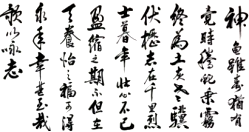 神龜雖壽猶有
竟時騰蛇乘霧
終為土灰老驥
伏櫪志在千里烈
士暮年壯心不已
盈縮之期不但在
天養怡之福可得
永年幸甚至哉
歌以詠志